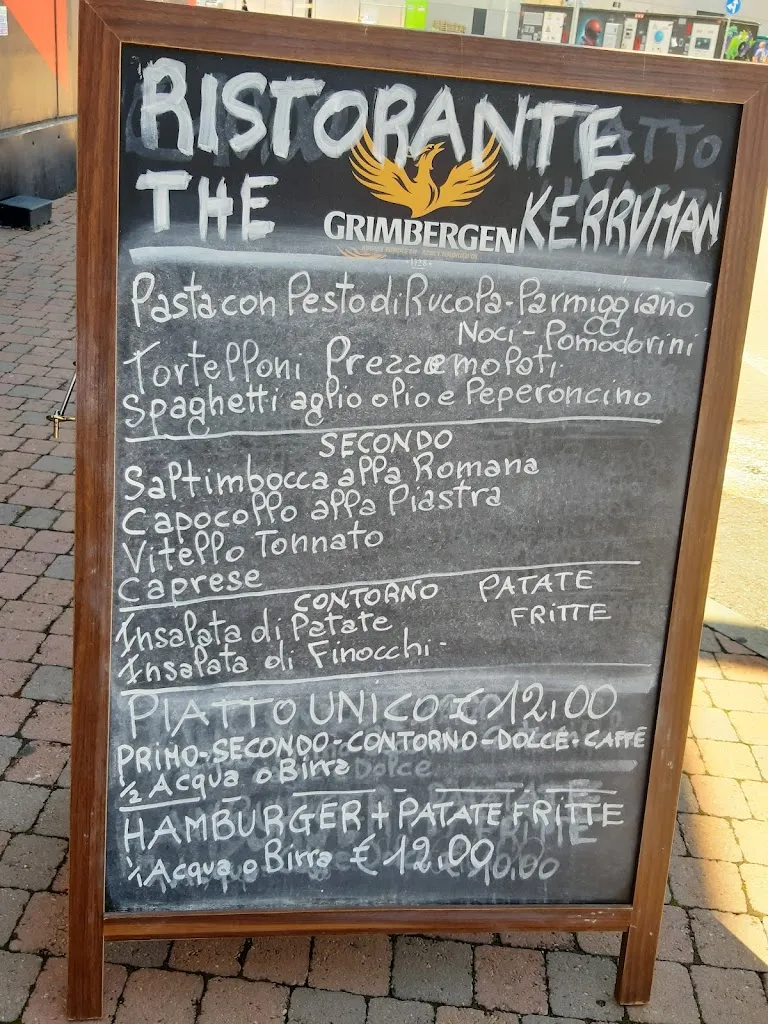 RISTORANTE
THE GRIMBERGEN KERRYMAN
Pasta con Pesto di Rucola-Parmiggiano
Noci-Pomodorini
Tortelloni Prezzemolati
Spaghetti aglio olio e Peperoncino
SECONDO
Saltimbocca alla Romana
Capocollo alla Piastra
Vitello Tonnato
Caprese
CONTORNO PATATE
Insalata di Patate FRITTE
Insalata di Finocchi-
PIATTO UNICO € 12,00
PRIMO-SECONDO-CONTORNO-DOLCE-CAFFÈ
½ Acqua o Birra
HAMBURGER + PATATE FRITTE
Acqua o Birra € 12,00